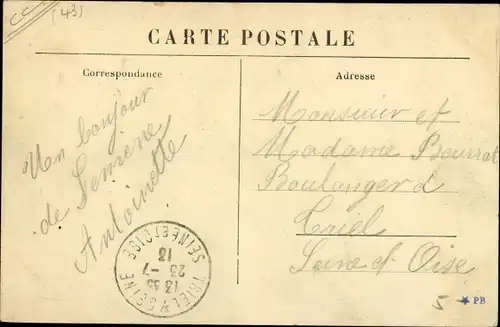 CC
(43)
CARTE POSTALE
Correspondance
Adresse
Un bonjour
de
Antoinette
Monsieur et
Madame Bourrat
Boulanger à
Triel
Seine et Oise
TRIEL S/ SEINE
13 35
23 -7
13
SEINE ET OISE
5
PB